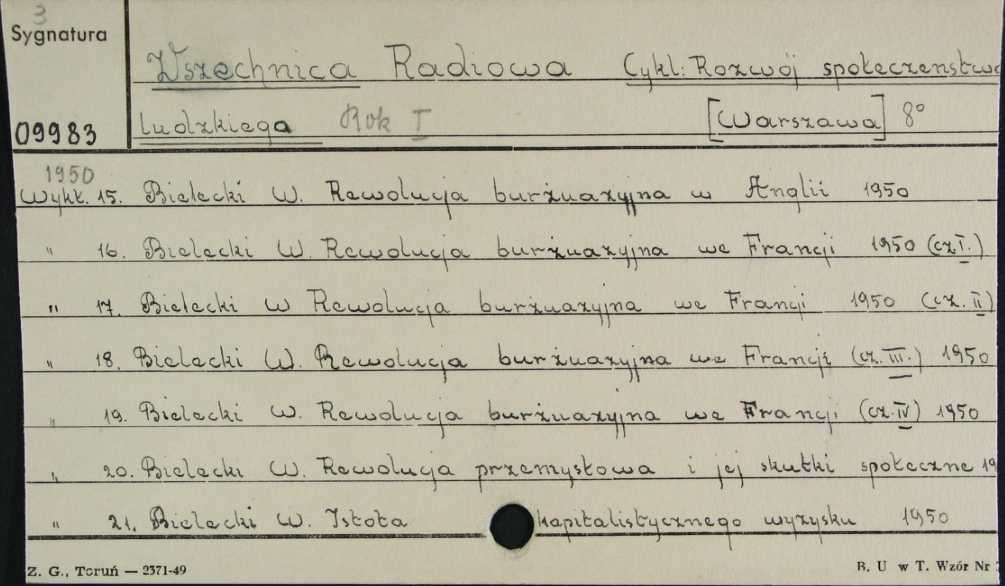 3
Sygnatura
Wszechnica Radiowa Cykl: Rozwój społeczeństwa
09983 ludzkiego Rok I [Warszawa] 8°
1950
Wykł. 15. Bielecki W. Rewolucja burżuazyjna w Anglii 1950
" 16. Bielecki W. Rewolucja burżuazyjna we Francji 1950 (cz I.)
" 17. Bielecki W Rewolucja burżuazyjna we Francji 1950 (cz. II)
" 18. Bielecki W. Rewolucja burżuazyjna we Francji (cz. III.) 1950
" 19. Bielecki W. Rewolucja burżuazyjna we Francji (cz. IV) 1950
" 20. Bielecki W. Rewolucja przemysłowa i jej skutki społeczne 19
" 21. Bielecki W. Istota kapitalistycznego wyzysku 1950
Z. G., Toruń — 2371-49 B. U w T. Wzór Nr